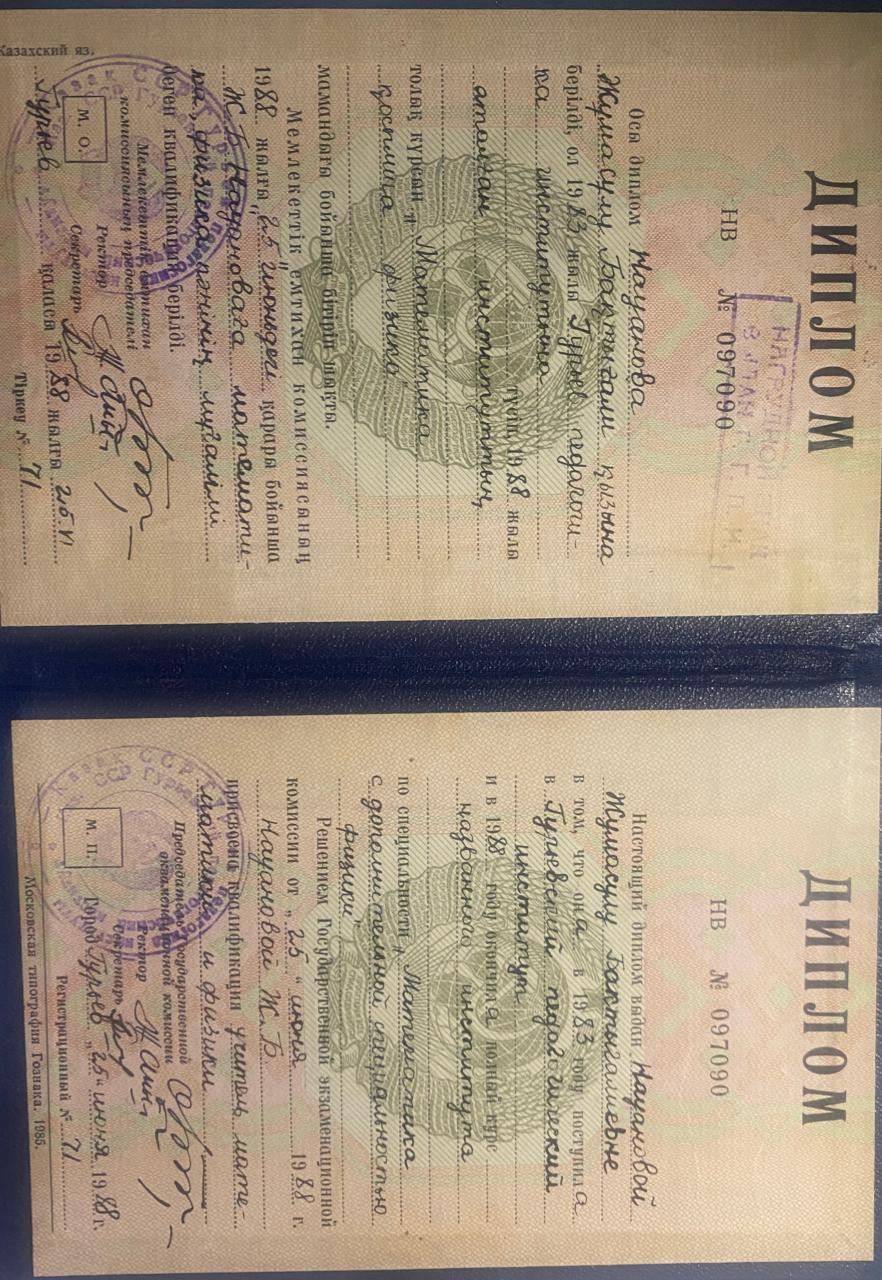 ДИПЛОМ
НВ № 097090
НАГРУДНОЙ
Осы диплом Науанова
Жумасулу Бактығали қызына
берілді, ол 1983 жылы Гурьев педагоги-
ка институтына
түсіп, 1988 жылы
аталған институттың
толық курсын „Математика
қосымша физика"
мамандығы бойынша бітіріп шықты.
Мемлекеттік емтихан комиссиясының
1988 жылғы „25" июньдегі қарары бойынша
Ж.Б Науановаға математи-
ка, физика пәнінің мұғалімі
деген квалификация берілді.
Мемлекеттік емтихан
комиссиясының председателі
Ректор
Секретарь
М. О.
Гурьев қаласы 1988 жылғы 25.VI
Тіркеу № 71
Казахский яз.
ДИПЛОМ
НВ № 097090
Настоящий диплом выдан Науановой
Жумасулу Бактыгалиевне
в том, что она в 1983 году поступила
в Гурьевский педагогический
институт
и в 1988 году окончила полный курс
названного института
по специальности „Математика
с дополнительной специальностью
физики"
Решением Государственной экзаменационной
комиссии от „25" июня 1988 г.
Науановой Ж.Б
присвоена квалификация учитель мате-
матики и физики
Председатель Государственной
экзаменационной комиссии
Ректор
Секретарь
М. П.
Город Гурьев „25" июня 1988 г.
Регистрационный № 71
Московская типография Гознака. 1985.